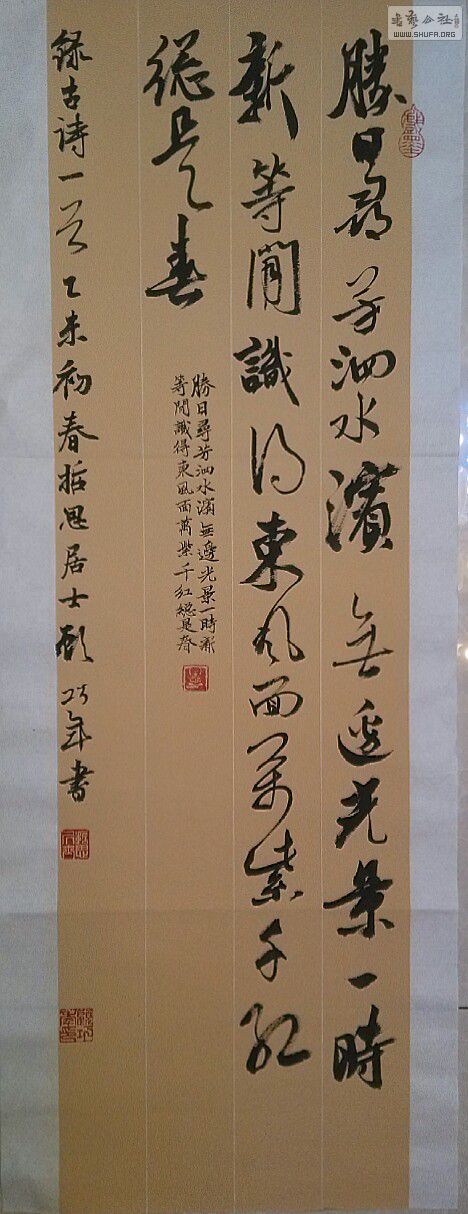 勝日尋芳泗水濱無邊光景一時
新等閒識得東風面萬紫千紅
總是春
勝日尋芳泗水濱無邊光景一時新
等閒識得東風面萬紫千紅總是春
錄古詩一首乙未初春哲思居士顧巧年書
WWW.SHUFA.ORG